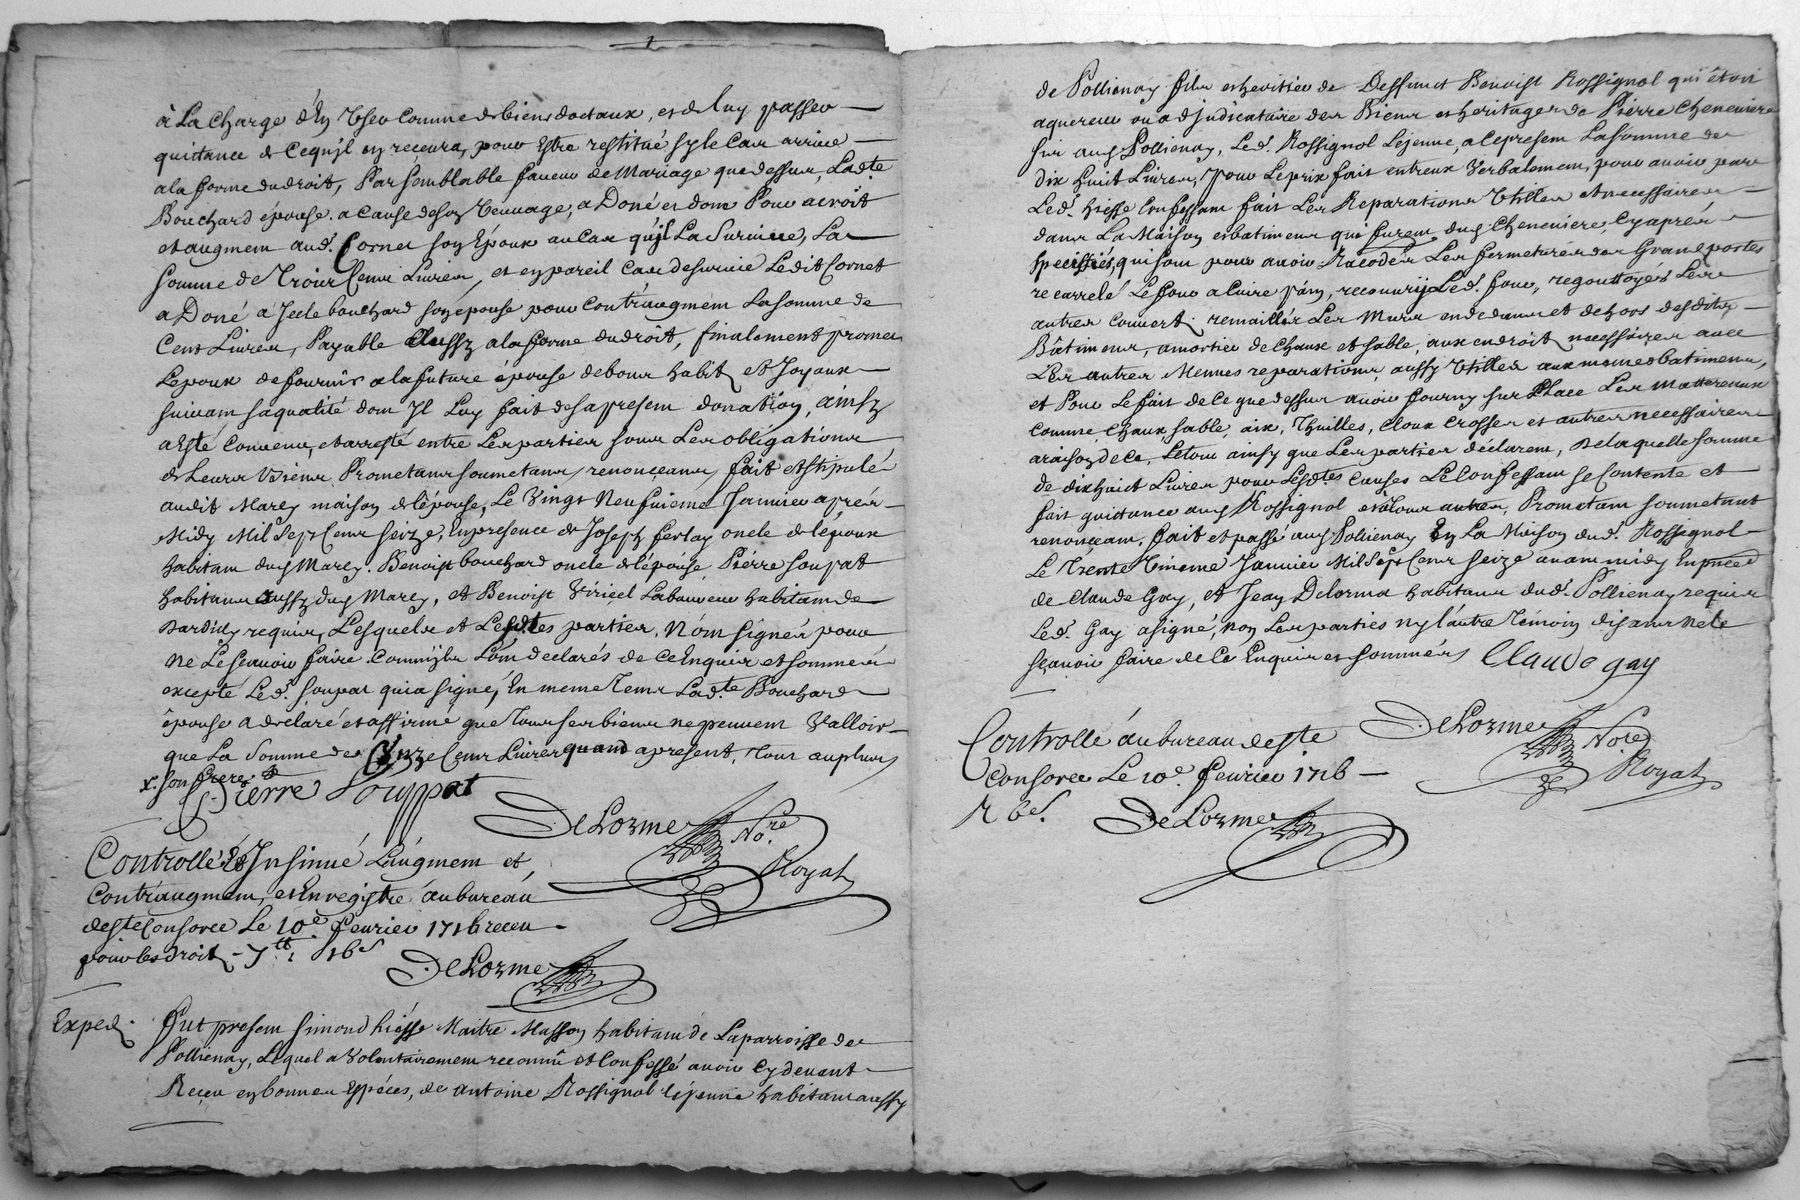 à La charge d'En Vser comme de biens dotaux, et de luy passer
quittance de Cequ'jl en receura, pour Estre restitué sy le Cas arriue
a la forme du droit, Par semblable faueur de Mariage que dessus, Ladte
Bouchard épouse. a cause de son Veuuage, a Doné et done Pour acroit
et augment aud. Cornet son Epoux au Cas qu'jl La Suruiue, La
somme de Trois Cens Liures, et en pareil Cas de suruie Ledit Cornet
a Doné a Jcele bouchard son epouse pour contraugment La somme de
Cent Liures, Payable Aussy a la forme du droit, finalement promet
Lepoux de fournir a la future épouse de bons habits et Joyaux
suiuant sa qualité dont Jl Luy fait de sa present donation, ainsy
a Esté Conuenu, et arresté entre Les parties sous Les obligations
de Leurs Biens Prometans soumetans, renonçeans, fait et stipulé
audit Marcy maison de l'épouse, Le Vingt Neufuieme Januier aprés
Midy Mil Sept Cens seize, En presence de Joseph ferlay oncle de lepoux
habitant dud Marcy. Benoist bouchard oncle de l'épouse, Pierre soupat
habitans aussy dud Marcy, et Benoist Viricel Laboureur habitant de
Dardilly requis, Lesquels et Lesdtes parties, N'ont signés pour
Ne Lescauoir faire comm'jls L'ont declarés de ce Enquis et sommés
excepté Led. soupat qui a signé, En meme Tems Ladte Bouchard
épouse a declaré et affirmé que Tous ses biens ne peuuent Valloir
que La Somme de Onze Cens Liures quand a present, Tout au plus
x son frere
Pierre Souppat
DeLorme Nore
Royal
Controllé Et Jnsinué L'augment et
Contraugment, et Enregistré au bureau
deste Consorce Le 10e feurier 1716 receu
pour les droits 7tt 16s
DeLorme
Exped.
fut present simond hiesse Maitre Masson habitant de La parroisse de
Pollienay, Lequel a Volontairement reconnû et Confessé auoir Cy deuant
Reçeu en bonnes Espéces, de antoine Rossignol lejeune habitant aussy
de Pollienay fils et heritier de Deffunct Benoist Rossignol qui étoit
aquereur ou adjudicataire des Biens et heritages de Pierre Cheneuiere
sis aud Pollienay, Led. Rossignol Lejeune, a Ce present La somme de
dix huit Liures, pour Le prix fait entreux Verbalement, pour auoir par
Led. hiesse Confessant fait Les Reparations Vtilles et necessaires
dans La Maison et batimens qui furent dud Cheneuiere, Cy aprés
specifiés, qui sont pour auoir Racoder Les fermetures des Grandes portes
re carrelé Le four a Cuire pain, recouurir Led. four, regouttoyés Les
autres couuert, remaillér Les Murs en dedans et dehors desdits
Bâtimens, a mortier de Chaux et sable, aux endroits necessaires auec
Les autres Mennes reparations aussy Vtilles aux memes batimens,
et Pour Le fait de Ce que dessus auoir fourny sur Place Les Matereaux
Comme, Chaux sable, aix, Thuilles, Cloux Crosses et autres necessaires
a raison de Ce, Letout ainsy que Les parties déclarent, De laquelle somme
de dix huict Liures pour Lesdtes Causes Le Confessant se Contente et
fait quittance aud Rossignol et à Tous autres, Prometant soumetant
renonceant, fait et passé aud Pollienay En La Maison dud. Rossignol
Le Trente Vnieme Januier Mil Sept Cens Seize auant midy En pnce
de Claude Gay, et Jean Delorme habitans dud. Pollienay requis
Led. Gay a signé, non Les parties ny l'autre Témoin disans ne le
sçauoir faire de Ce Enquis et sommés
Claude gay
DeLorme Nore
Royal
Controllé au bureau deste
Consorce Le 10e feurier 1716
DeLorme